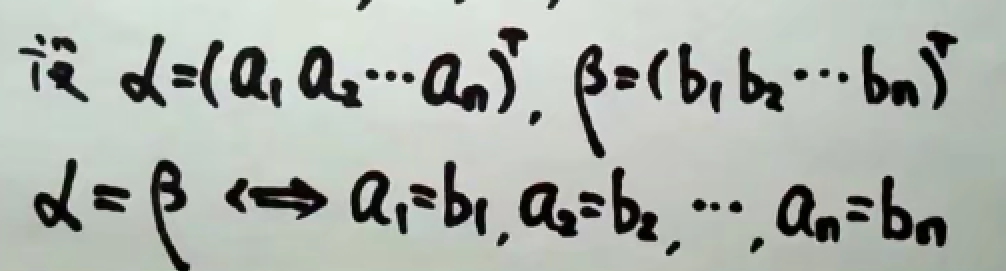 设 α=(a₁ a₂ ⋯ aₙ)ᵀ, β=(b₁ b₂ ⋯ bₙ)ᵀ
α=β ⟺ a₁=b₁, a₂=b₂, ⋯, aₙ=bₙ